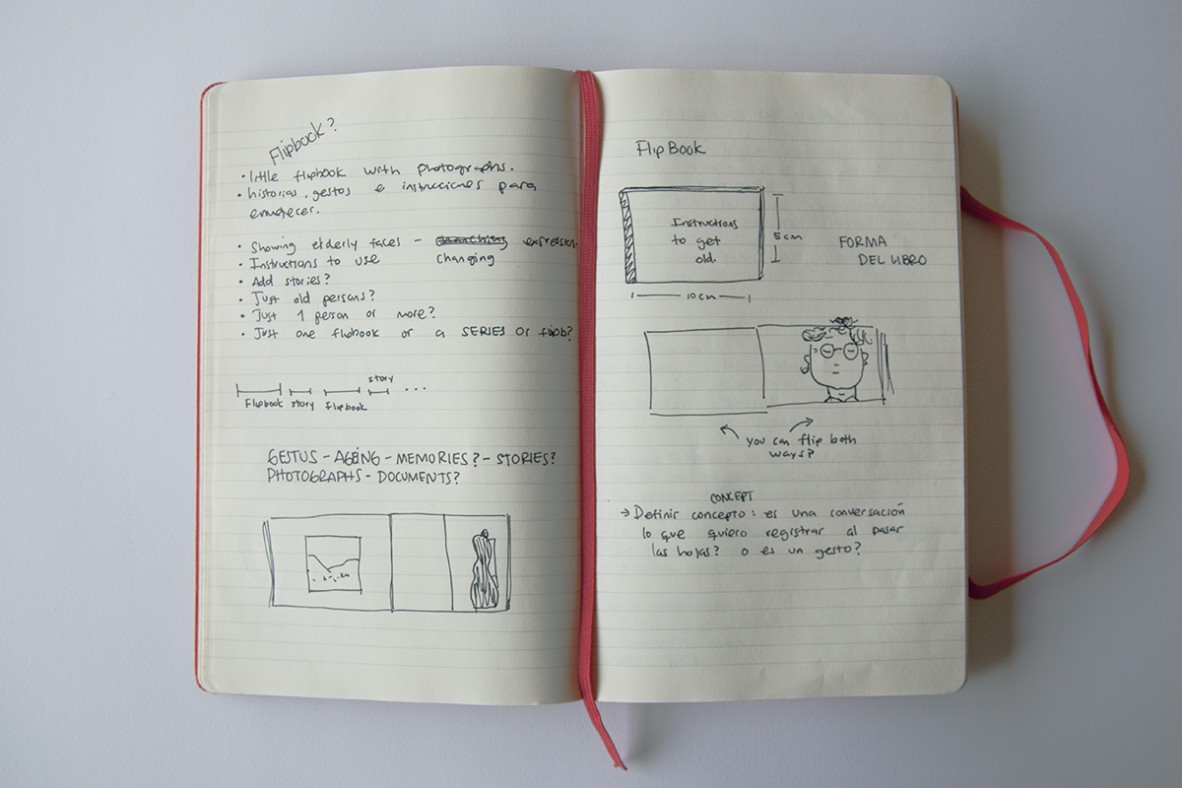 Flipbook?
• little flipbook with photographs.
• historias, gestos e instrucciones para
envejecer.
• Showing elderly faces - expression.
changing
• Instructions to use
• Add stories?
• Just old persons?
• Just 1 person or more?
• Just one flipbook or a SERIES of
story
Flipbook story Flipbook ...
GESTUS - AGEING - MEMORIES? - STORIES?
PHOTOGRAPHS - DOCUMENTS?
FlipBook
Instructions
to get
old.
5cm
10cm
FORMA
DEL LIBRO
you can flip both
ways?
CONCEPT
→ Definir concepto: es una conversación
lo que quiero registrar al pasar
las hojas? o es un gesto?